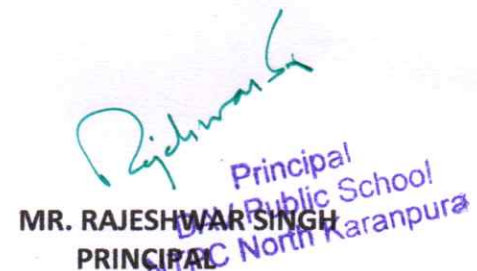 Rajeshwar S
Principal
DAV Public School
NTPC North Karanpura
MR. RAJESHWAR SINGH
PRINCIPAL